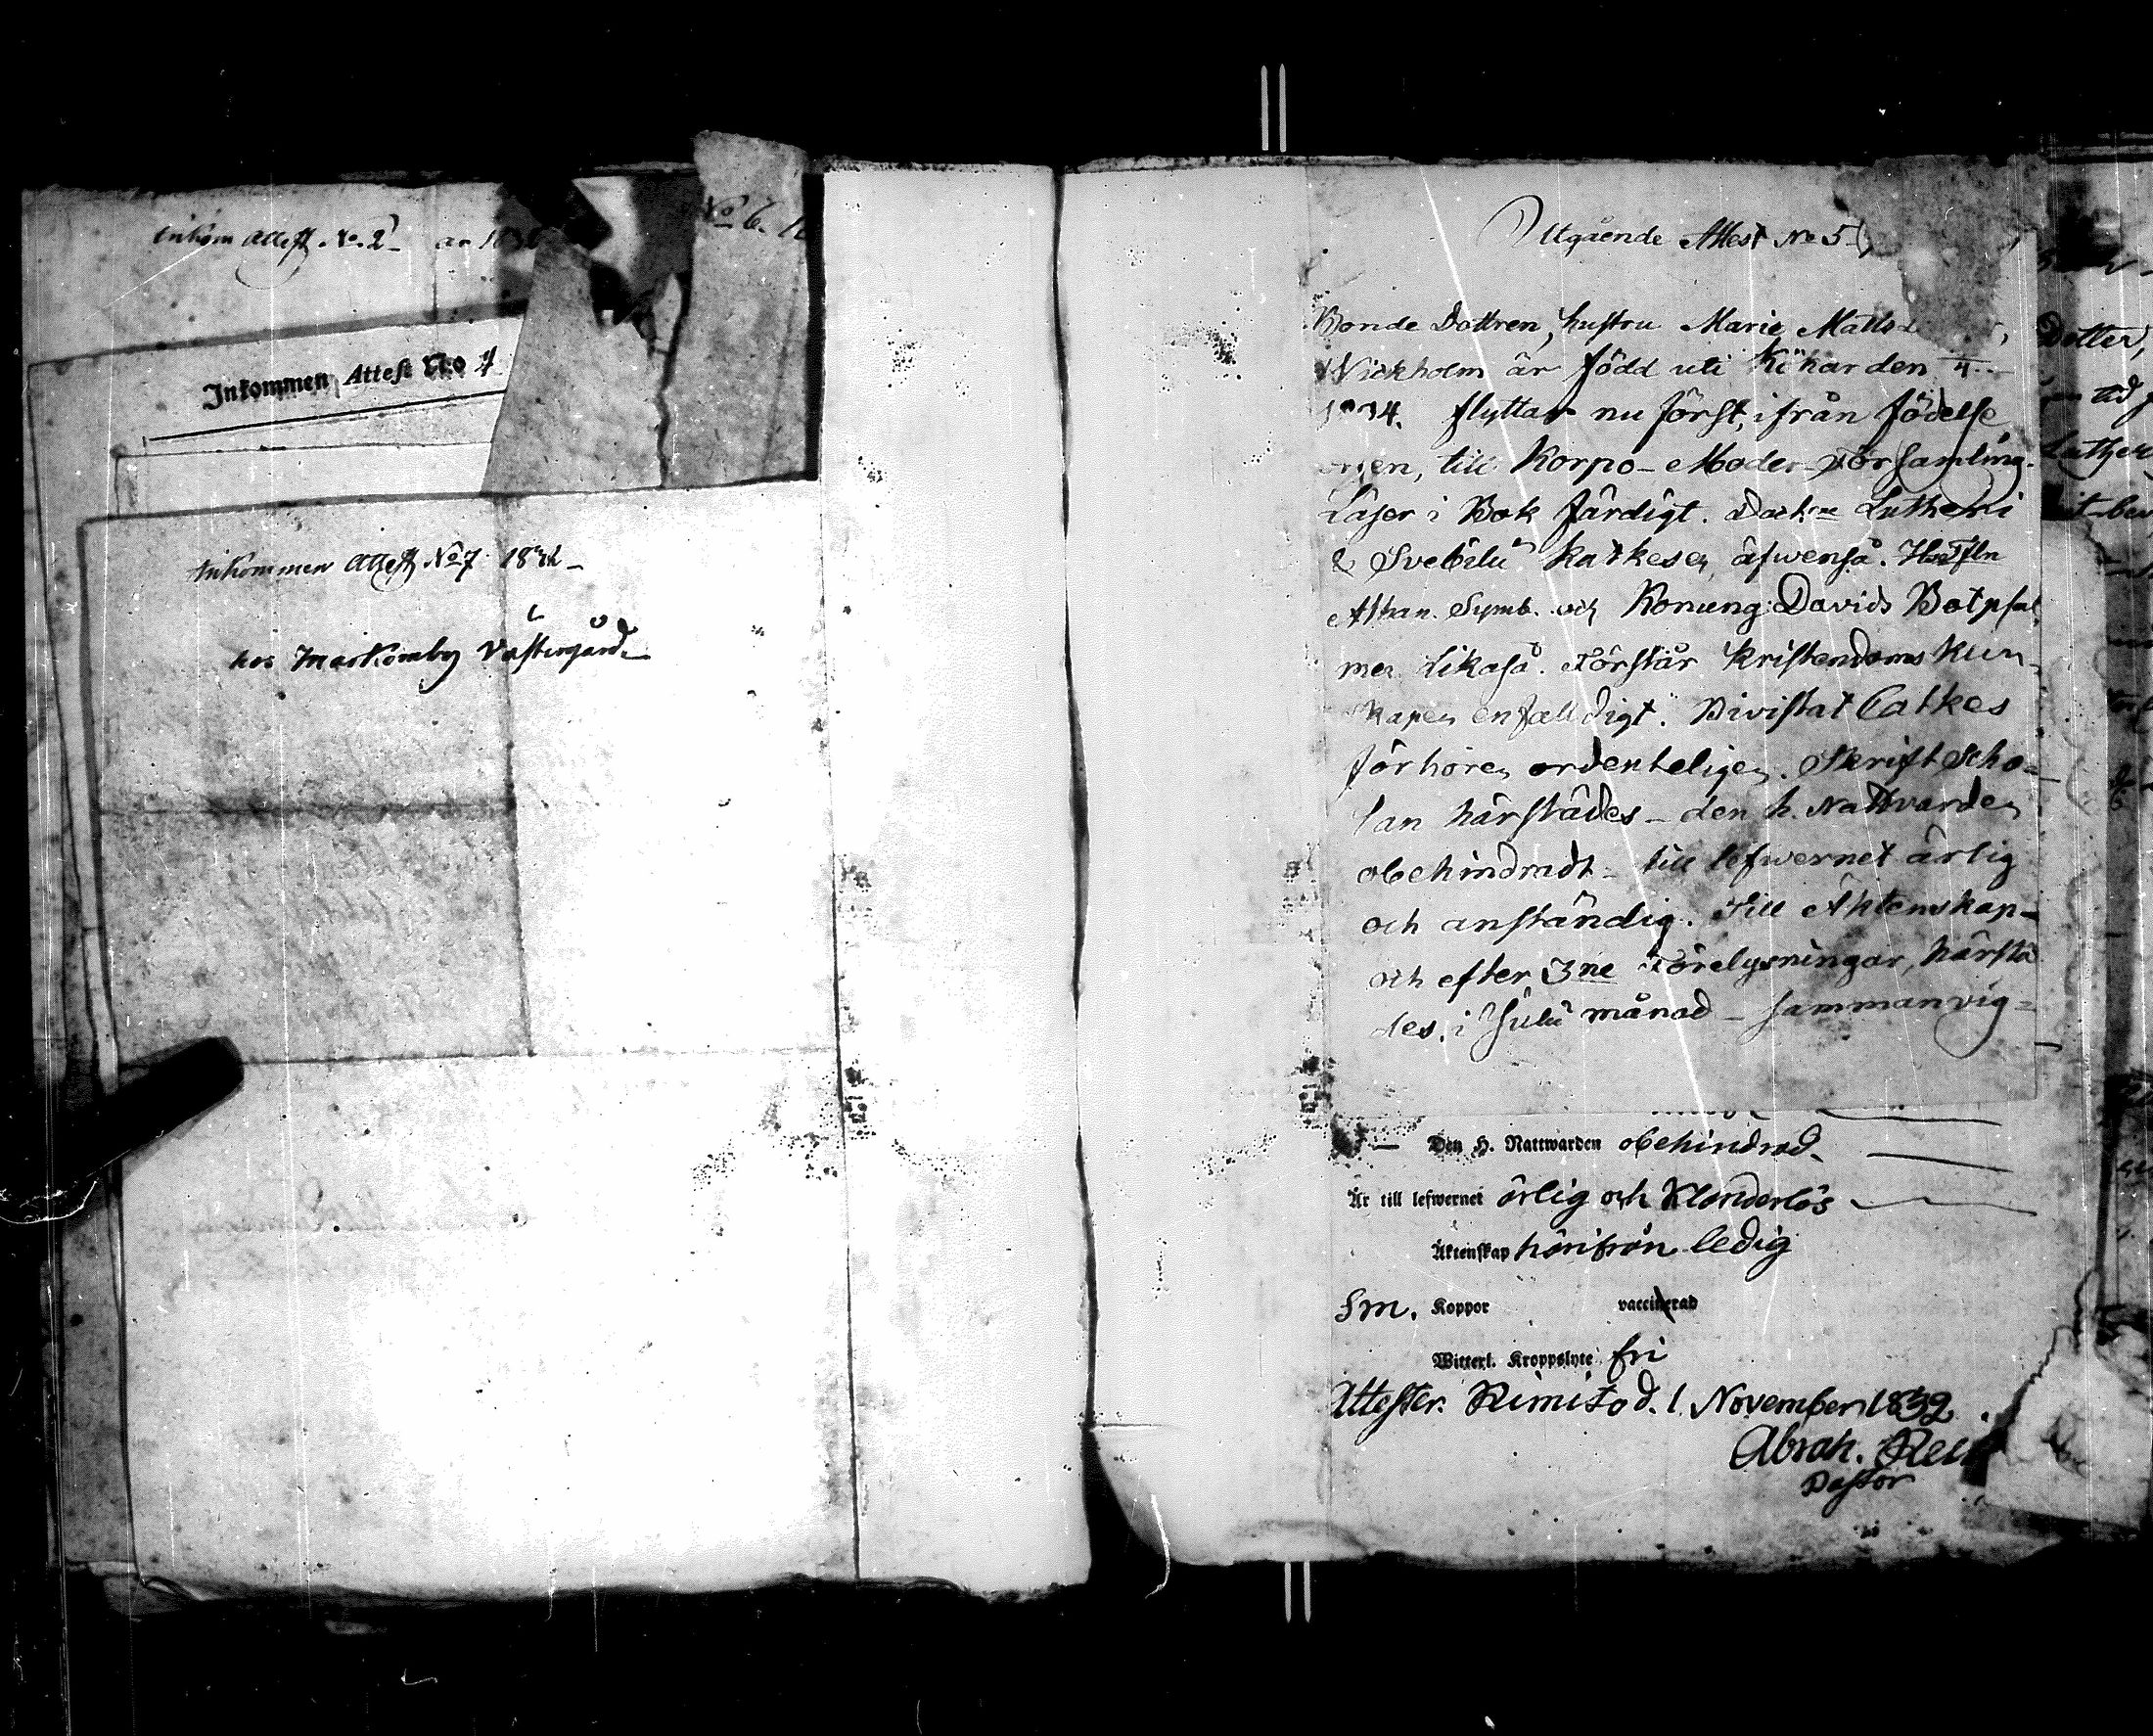 Inkom Attest No. 2 år 183
No 6.
Inkommen Attest No 4
Inkommen Attest No 7 1832
hos Markomby Västergård
Utgående Attest No 5
Bonde Dottren, hustru Maria Matts
Wickholm är född uti Kökar den 4
flyttar nu först, ifrån födelse
orten, till Korpo-Moder-Församling.
Läser i Bok färdigt. Doct. Lutheri
& Svebilii Katkeser, äfwenså.
Athan. Symb. och Konung: Davids Botpsal
mer likaså. Förstår Kristendoms Kun-
skapen enfalldigt. Bivistat Catkes
förhören ordenteligen. Skrift Scho-
lan härstädes - den h. Nattvarden
obehindradt - till lefwernet ärlig
och anständig. Till Äktenskap-
och efter 3ne Förelysningar, härstä
des, i Julii månad - sammanvig=
Den H. Nattwarden obehindrad.
Är till lefwernet ärlig och Klanderlös
Äktenskap härifrån ledig
Sm. Koppor vaccinerad
Witterl. Kroppslyte fri
Attester. Kimito d. 1 November 1832
Abrah.
Pastor
Dotter,